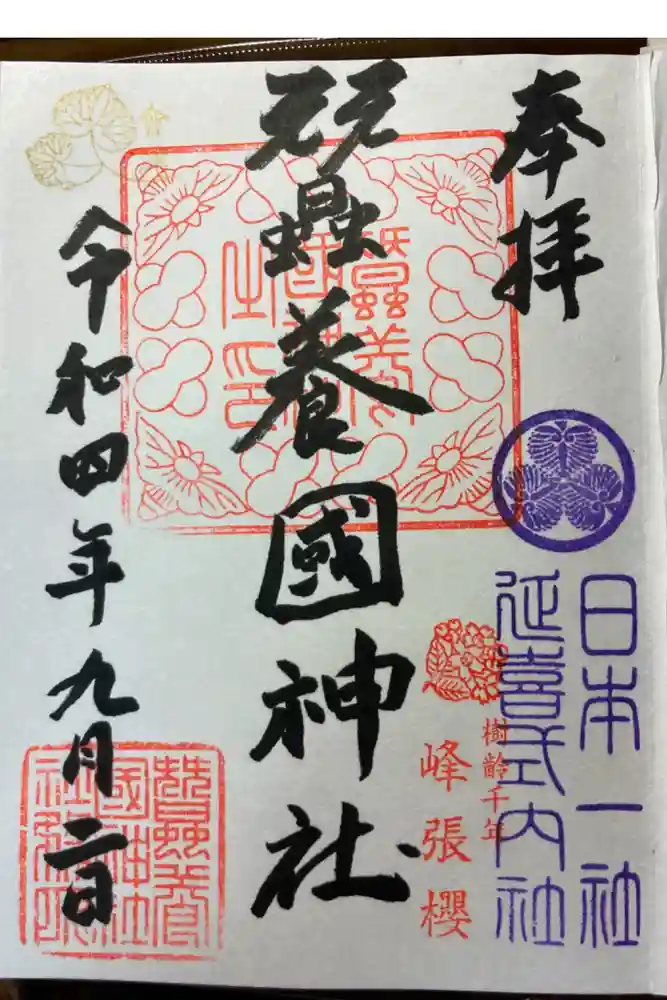 奉拝
日本一社
延喜式内社
樹齡千年
峰張櫻
蠶養國神社
令和四年九月二日